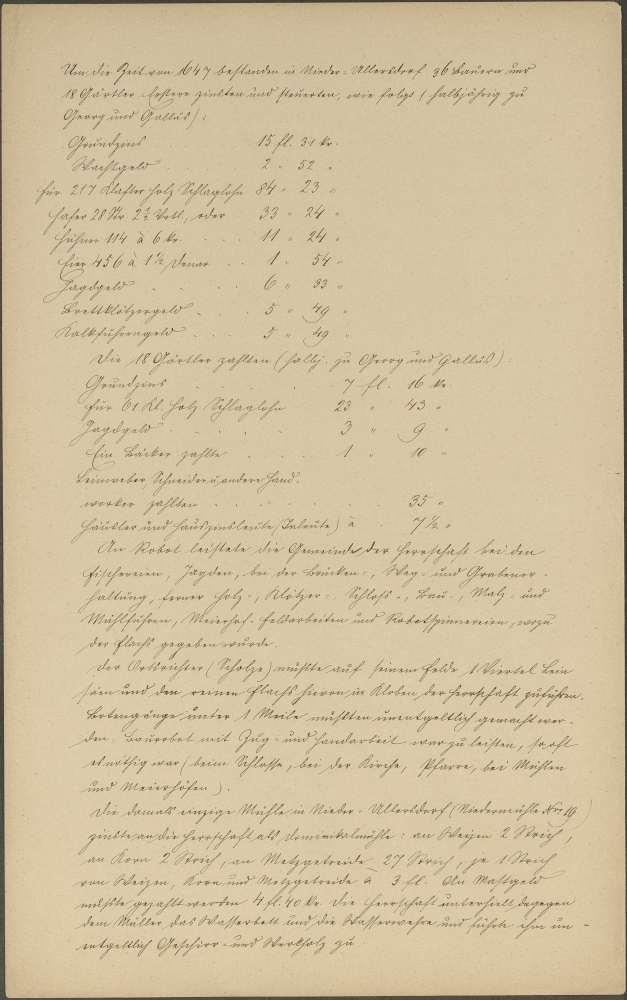 Um die Zeit von 1647 bestanden in Nieder-Ullersdorf 36 Bauern und
18 Gärtler. Erstere zinsten und steuerten, wie folgt (halbjährig zu
Georg und Gallus):
Grundzins 15 fl. 31 kr.
Wachtgeld . 2 " 52 "
für 217 Klafter Holz Schlaglohn 84 " 23 "
Hafer 28 Str. 2 2/4 Vrtl., oder 33 " 24 "
Hühner 114 à 6 kr. . . . 11 " 24 "
Eier 456 à 1 1/2 Denar . . 1 " 54 "
Jagdgeld . . . . 6 " 33 "
Brettklötzergeld . . . 5 " 49 "
Kalkfuhrengeld . . . 5 " 49 "
Die 18 Gärtler zahlten (halbj. zu Georg und Gallus):
Grundzins . . . . 7 fl. 16 kr.
für 61 Kl. Holz Schlaglohn 23 " 43 "
Jagdgeld . . . . . 3 " 9 "
Ein Bäcker zahlte . . . 1 " 10 "
Leinweber, Schneider u. andere Hand-
werker zahlten . . . . . 35 "
Häusler und Hauszinsleute (Inleute) à . 7 1/2 "
An Robot leistete die Gemeinde der Herrschaft bei den
Fischereien, Jagden, bei der Brücken-, Weg- und Grabener-
haltung, ferner Holz-, Klötzer-, Schloß-, Bau-, Malz- und
Mühlfuhren, Meierhof-Feldarbeiten und Robotspinnereien, wozu
der Flachs gegeben wurde.
Der Ortsrichter (Scholze) mußte auf seinem Felde 1 Viertel Lein
säen und den reinen Flachs hievon in Kloben der Herrschaft zuführen.
Botengänge unter 1 Meile mußten unentgeltlich gemacht wer-
den. Baurobot mit Zug- und Handarbeit war zu leisten, so oft
es nöthig war (beim Schlosse, bei der Kirche, Pfarre, bei Mühlen
und Meierhöfen).
Die damals einzige Mühle in Nieder-Ullersdorf (Niedermühle Nro 19)
zinste an die Herrschaft als Dominikalmühle: an Weizen 2 Strich,
an Korn 2 Strich, an Metzgetreide 27 Strich, je 1 Strich
von Weizen, Korn und Metzgetreide à 3 fl. An Mastgeld
mußte gezahlt werden 4 fl. 40 kr. Die Herrschaft unterhielt dagegen
dem Müller das Wasserbett und die Wasserwehre und führte ihm un-
entgeltlich Geschirr- und Werkholz zu